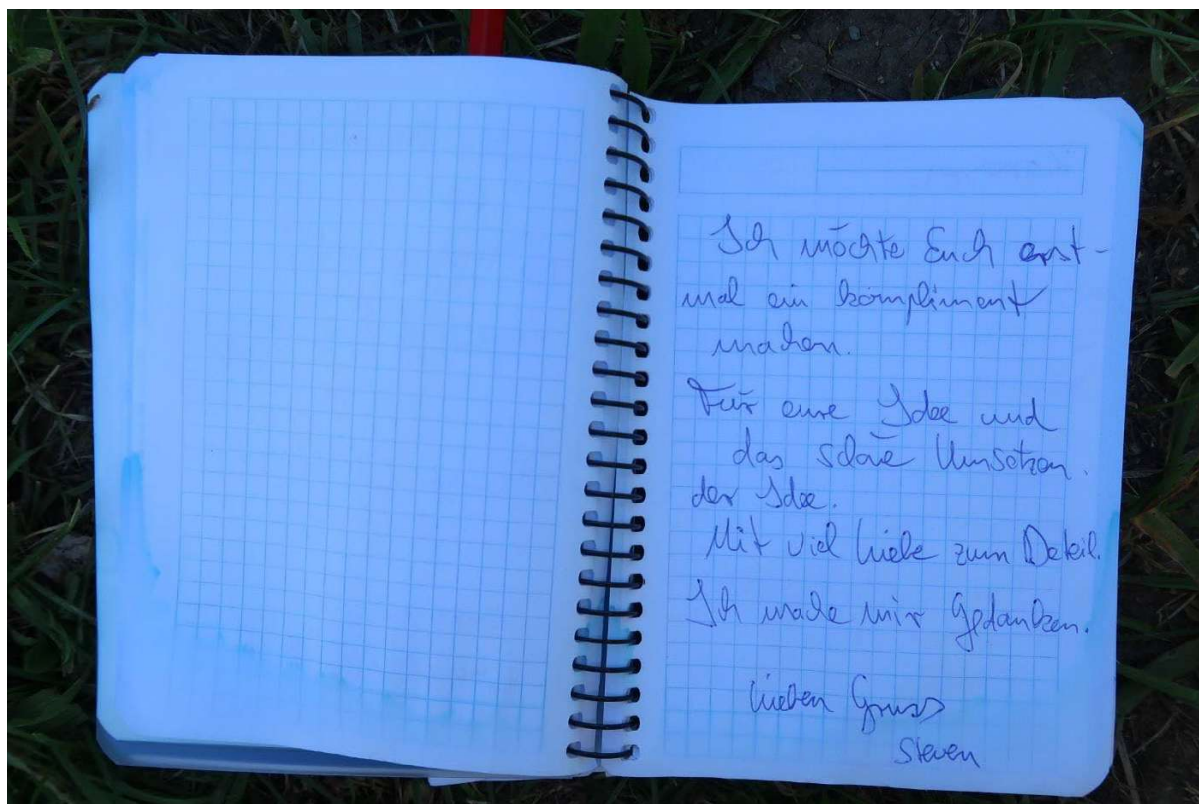 Ich möchte Euch erst-
mal ein kompliment
machen.
Für eure Idee und
das schöne Umsetzen
der Idee.
Mit viel Liebe zum Detail.
Ich mache mir Gedanken.
Lieben Gruss
Steven